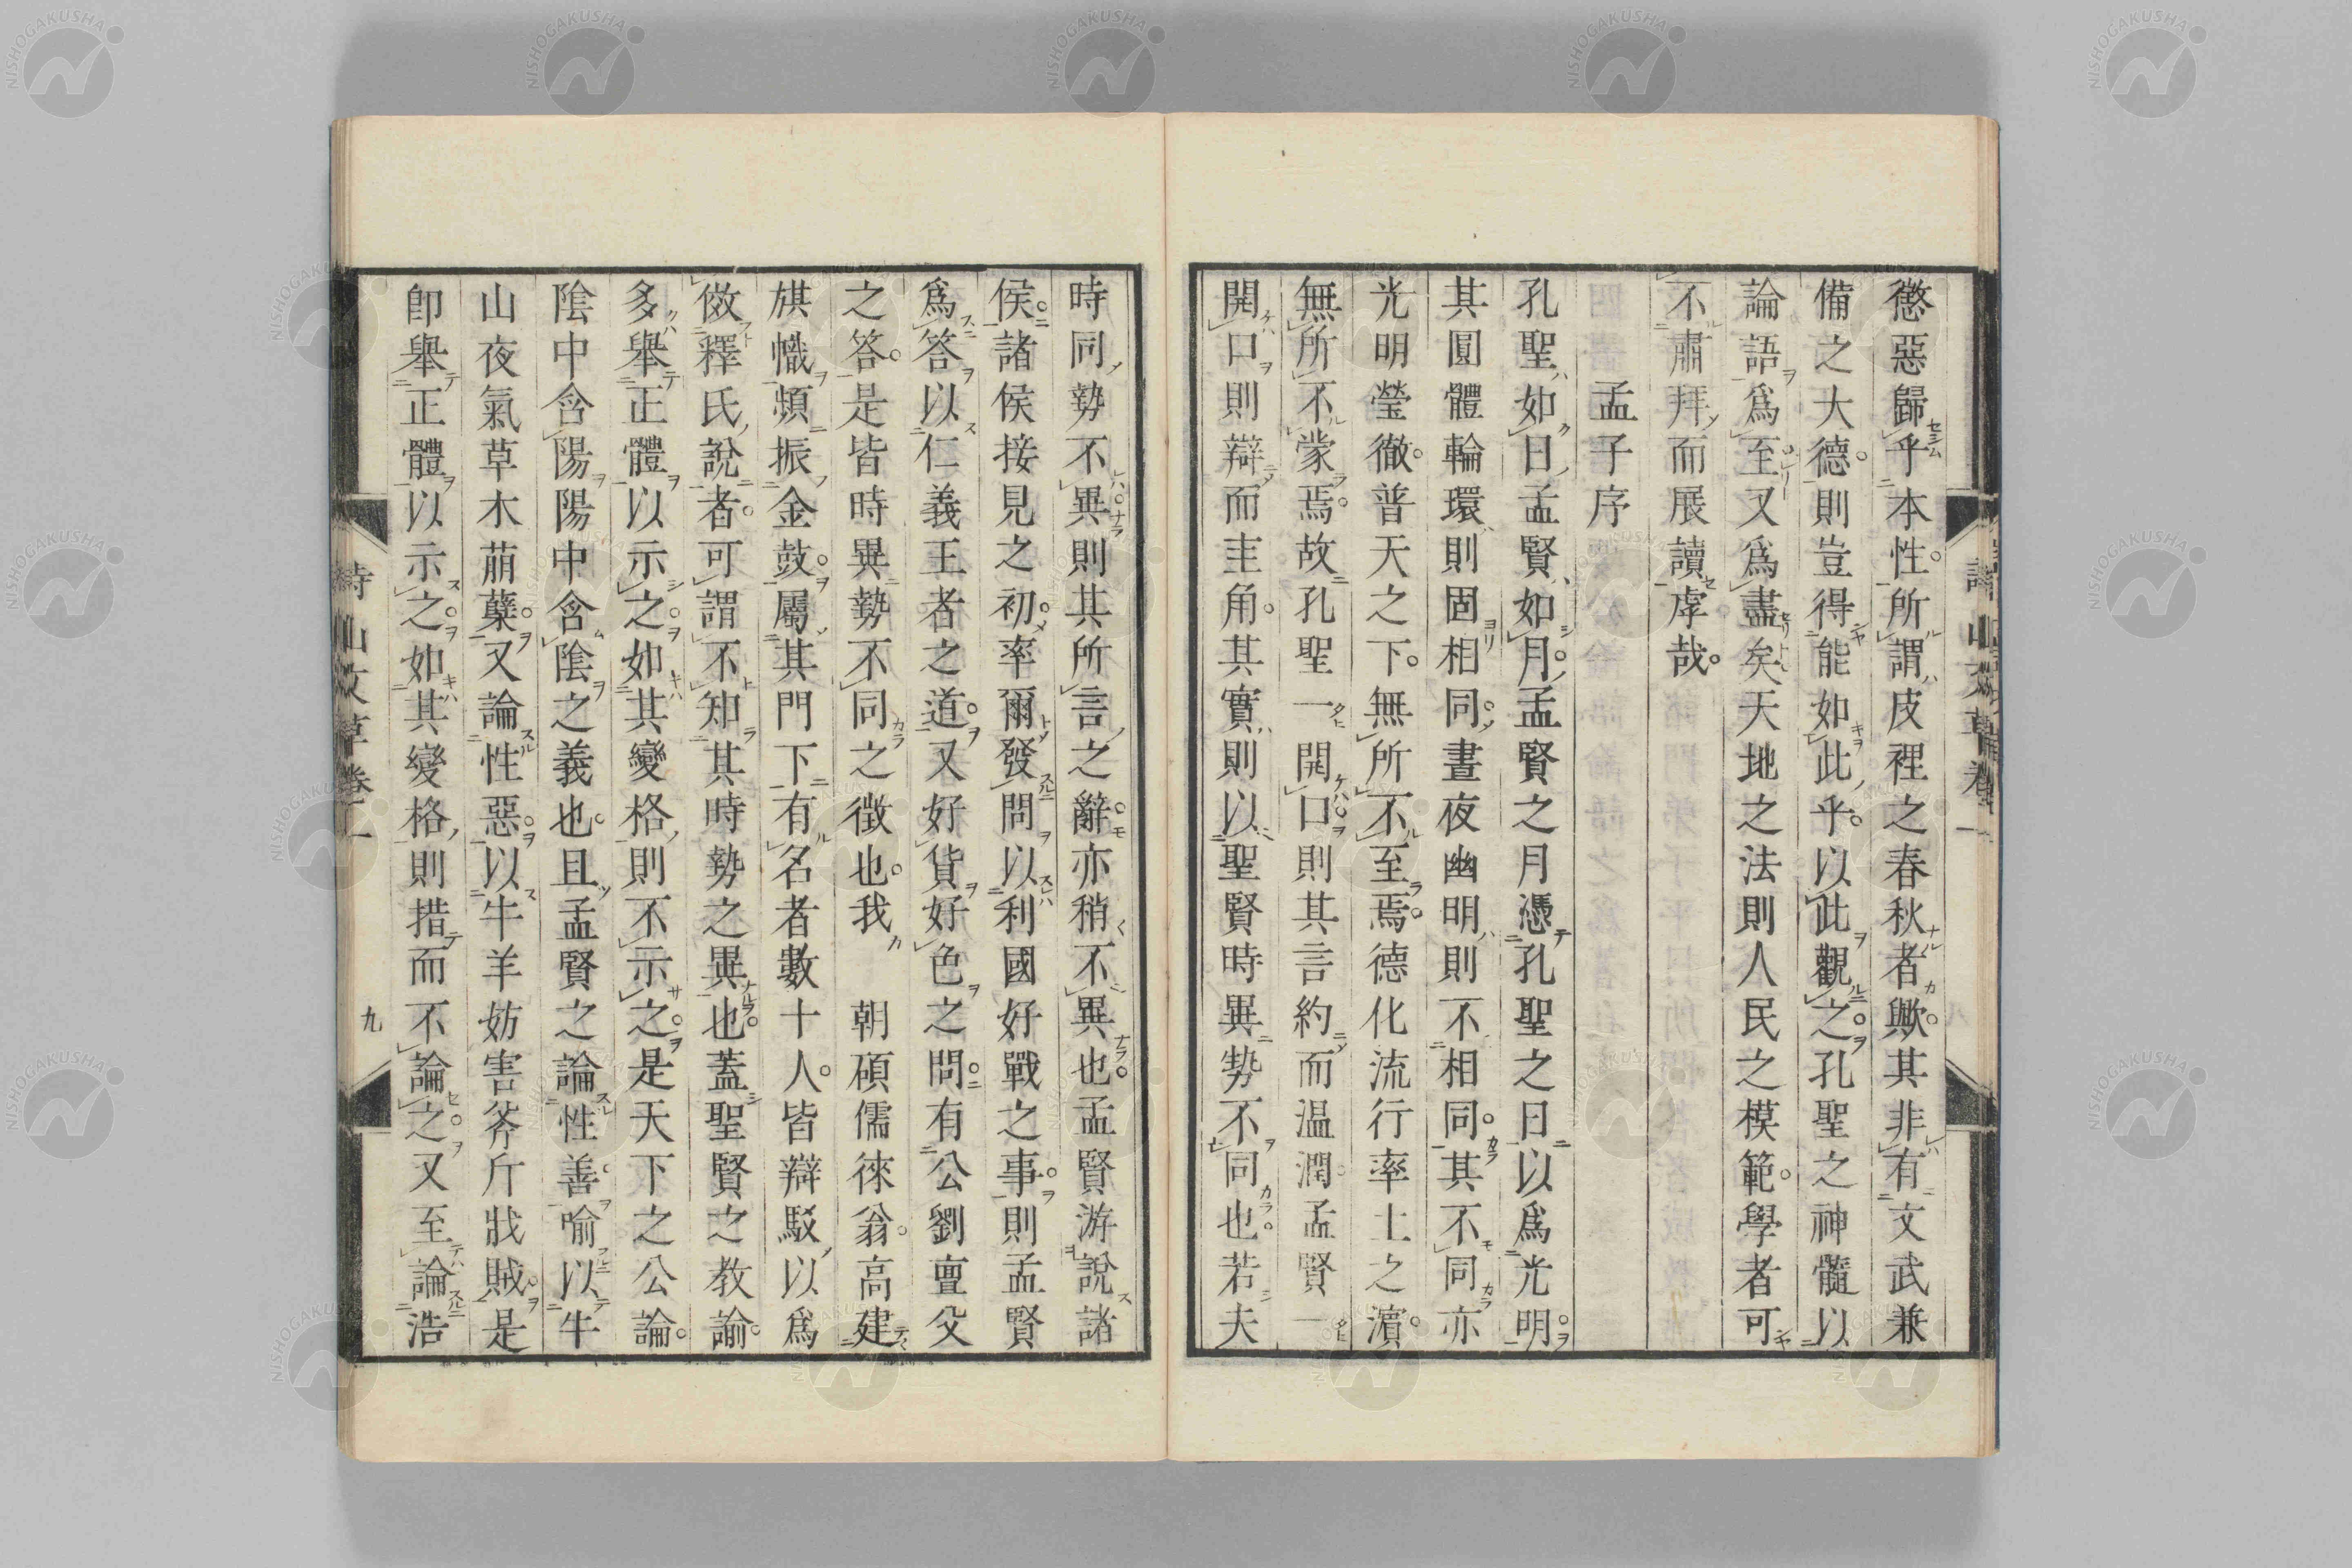 懲惡歸乎本性。所謂皮裡之春秋者歟。其非有文武兼
備之大德。則豈得能如此乎。以此觀之。孔聖之神髓以
論語爲至又爲盡矣天地之法則人民之模範。學者可
不肅拜而展讀虖哉。
孟子序
孔聖如日孟賢如月。孟賢之月憑孔聖之日以爲光明。
其圓體輪環則固相同。晝夜幽明則不相同。其不同亦
光明瑩徹。普天之下。無所不至焉。德化流行率土之濵。
無所不蒙焉。故孔聖一開口則其言約而温潤。孟賢一
開口則辯而圭角。其實則以聖賢時異勢不同也。若夫
時同勢不異則其所言之辭亦稍不異也。孟賢游說諸
侯。諸侯接見之初。率爾發問以利國好戰之事。則孟賢
爲答以仁義王者之道。又好貨好色之問。有公劉亶父
之答。是皆時異勢不同之徴也。我 朝碩儒徠翁。高建
旗幟頻振金鼓。屬其門下有名者數十人。皆辯駁以爲
倣釋氏說者。可謂不知其時勢之異也。蓋聖賢之教諭。
多舉正體以示之。如其變格則不示之。是天下之公論。
陰中含陽陽中含陰之義也。且孟賢之論性善。喻以牛
山夜氣草木萠蘖。又論性惡。以牛羊妨害斧斤戕賊。是
卽舉正體以示之。如其變格則措而不論之。又至論浩
詩山文草卷一
九